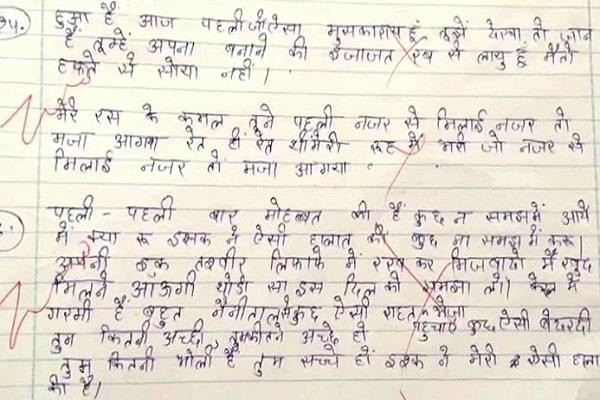 हुआ है आज पहली जो ऐसा मुसकाराय हुं तुम्हें देखा तो जान
है तुम्हें अपना बनाने की इजाजत रब से लायु हुं मैतो
हफ्ते से सोया नहीं।
मेरे रस के कमल तूने पहली नजर से मिलाई नजर तो
मजा आगया रेत ही रेत थी मेरी रूह में भरी जो नजर से
मिलाई नजर तो मजा आगया
पहली - पहली बार मोहब्बत की है कुछ न समझमें आये
में क्या करू इसक ने ऐसी हालत की कुछ ना समझ में
अपनी एक तस्वीर लिफाफे में रख कर भिजवादो मैं खुद
मिलने आऊगी थोडी सा इस दिल को समझा लो। में
गरमी है बहुत नैनीताल कुछ ऐसी राहत भेजा
तुन कितनी अच्छी तुम कितने अच्छे हो कुछ ऐसी बेदरदी
तुम कितनी भोली है तुम सच्चे हो इश्क ने मेरी ऐसी हाला
की है।